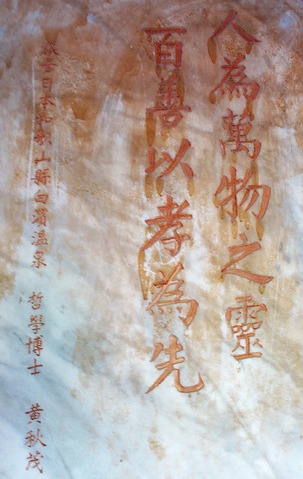 人為萬物之靈
百善以孝為先
日本和歌山縣白濱溫泉 哲學博士 黃秋茂